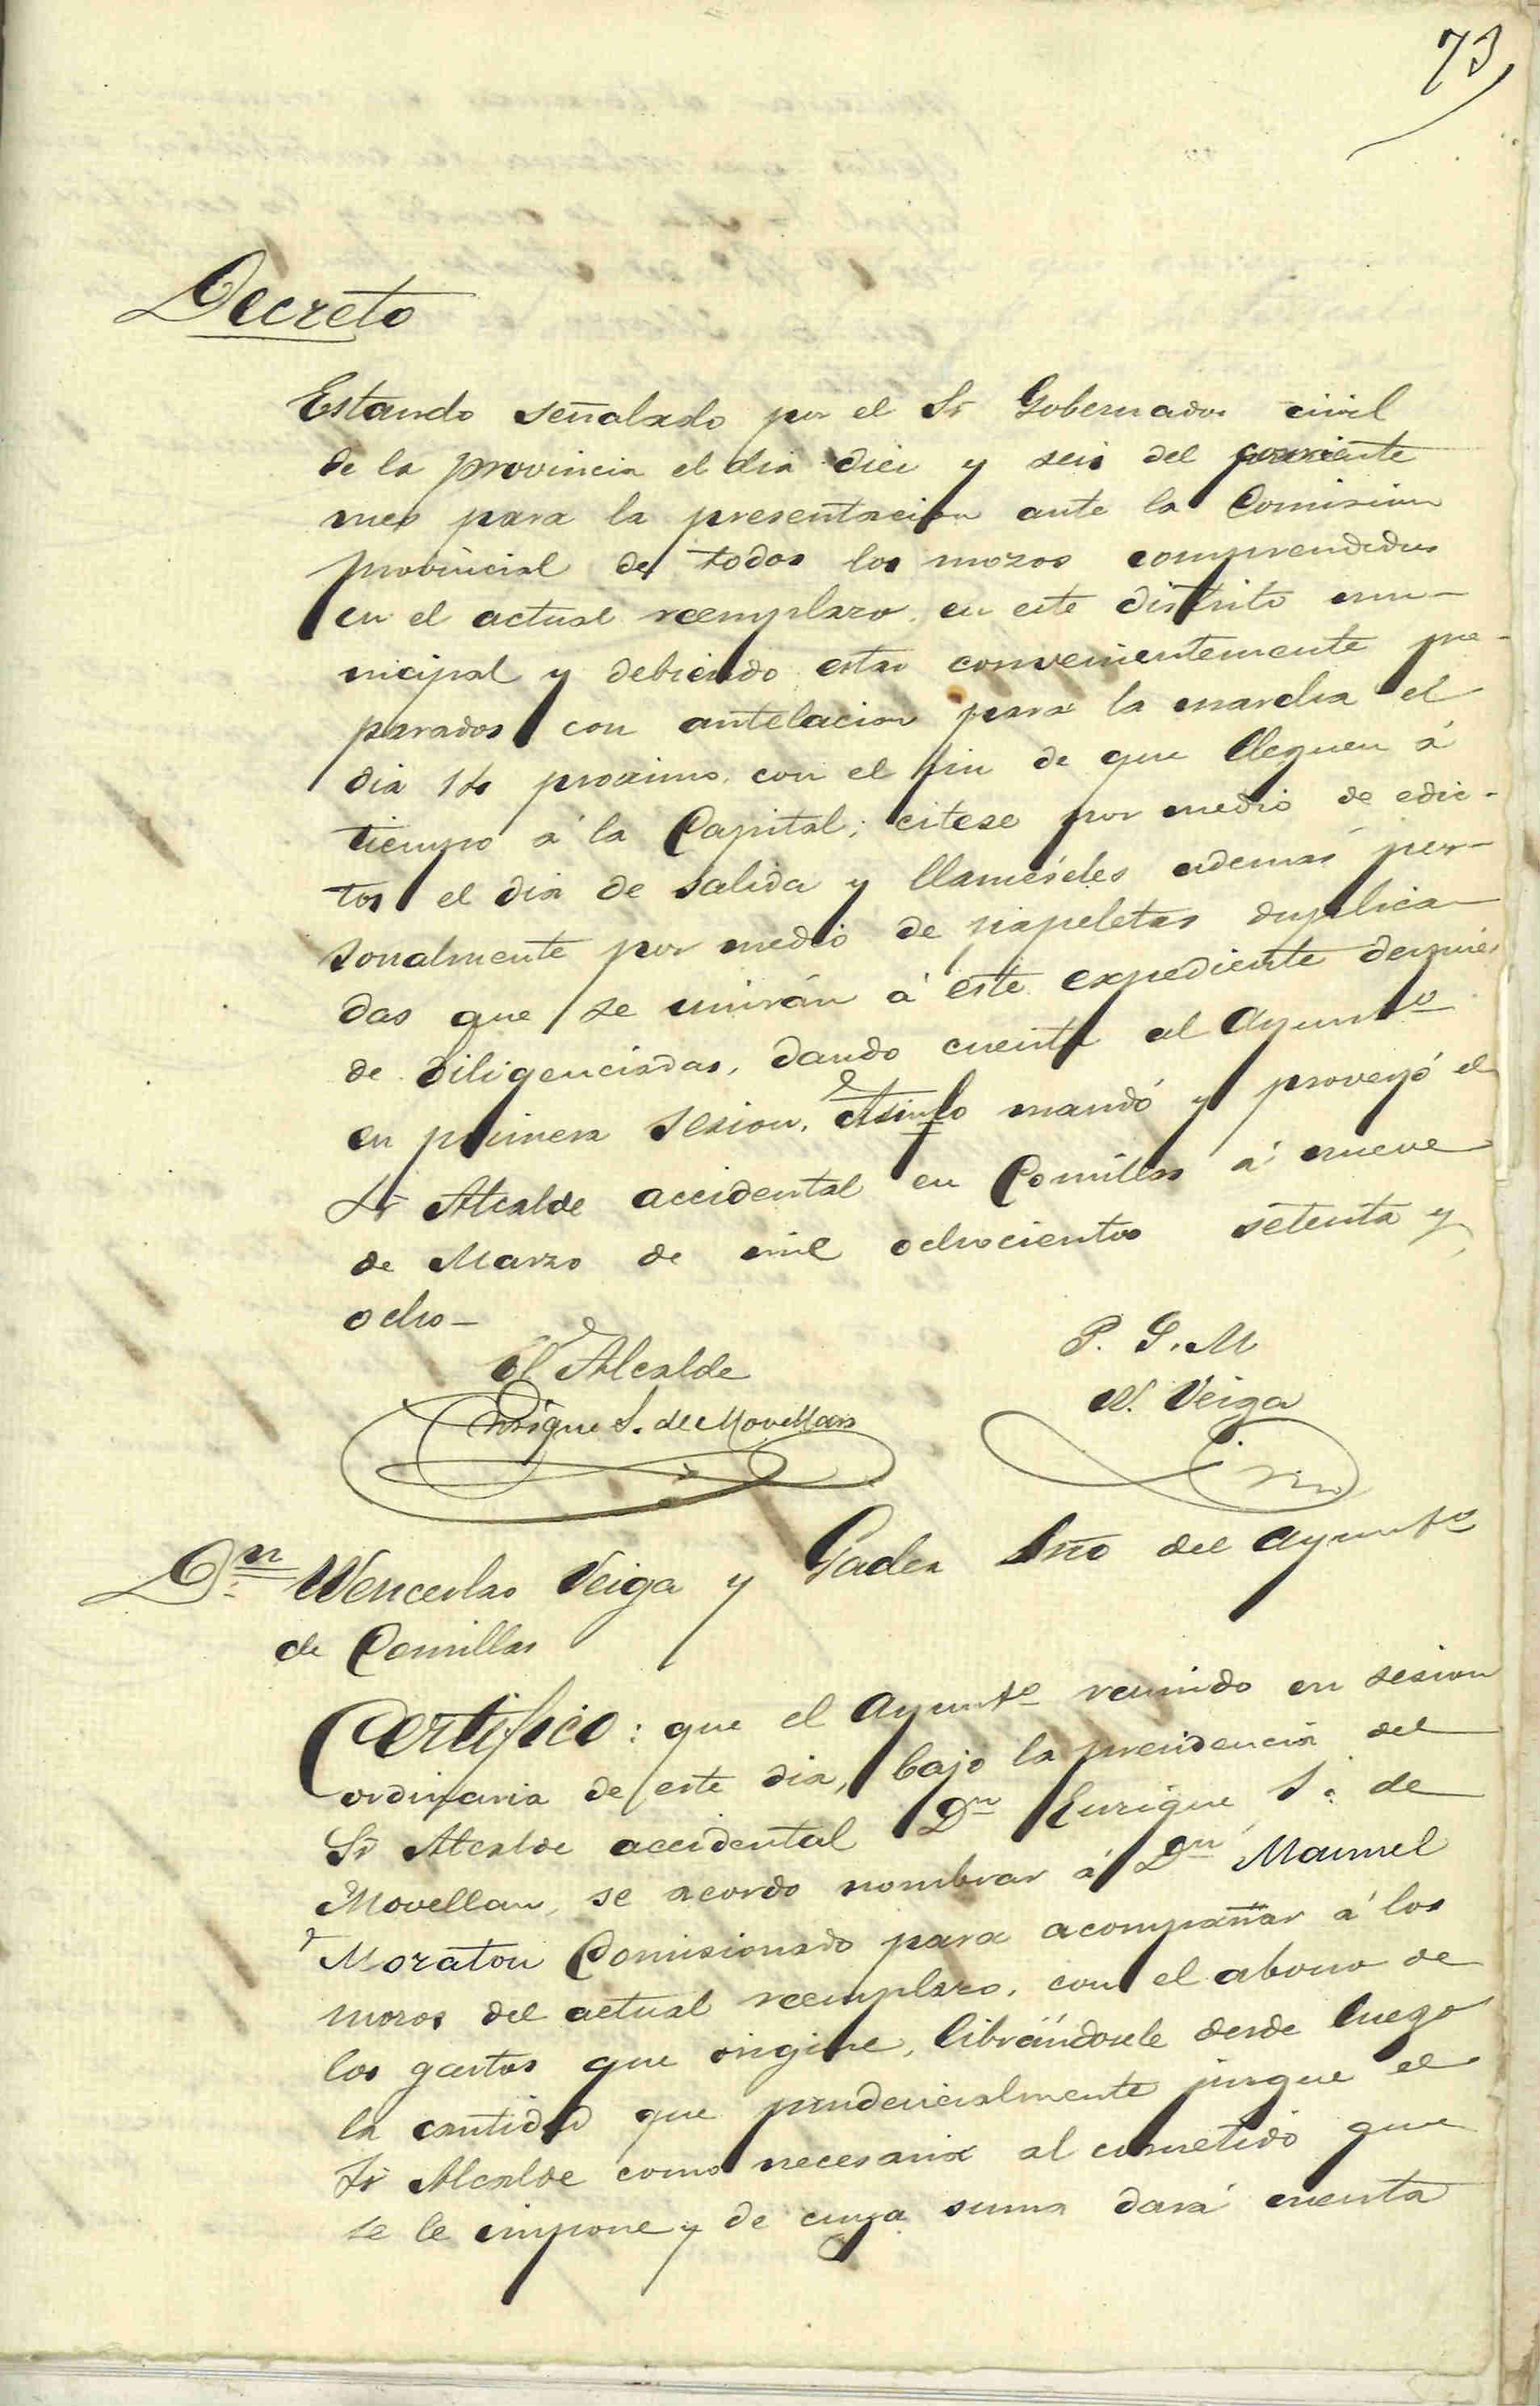 73
Decreto
Estando señalado por el Sr Gobernador civil
de la provincia el dia diez y seis del corriente
mes para la presentacion ante la Comision
provincial de todos los mozos comprendidos
en el actual reemplazo en este distrito mu-
nicipal y debiendo estar convenientemente pre-
parados con antelacion para la marcha el
dia 14 proximo con el fin de que lleguen á
tiempo á la Capital; citese por medio de edic-
tos el dia de salida y llameseles ademas per-
sonalmente por medio de papeletas duplica-
das que se unirán á este expediente despues
de diligenciadas, dando cuenta al Ayunto
en primera sesion. Asi lo mandó y proveyó el
Sr Alcalde accidental en Comillas á nueve
de Marzo de mil ochocientos setenta y
ocho-
El Alcalde
Enrique S. de Movellan
P. S. M
W. Veiga
Dn Wenceslao Veiga y Gadea Srio del Ayunto
de Comillas
Certifico: que el Ayunto reunido en sesion
ordinaria de este dia, bajo la presidencia del
Sr Alcalde accidental Dn Enrique S. de
Movellan, se acordo nombrar á Dn Manuel
Moraton Comisionado para acompañar á los
mozos del actual reemplazo, con el abono de
los gastos que origine, librándosele desde luego
la cantidad que prudencialmente juzgue el
Sr Alcalde como necesaria al cometido que
se le impone y de cuya suma dará cuenta